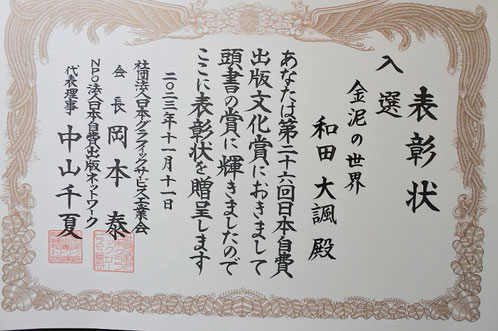 表彰状
入選
金泥の世界
和田 大諷 殿
あなたは第二十六回日本自費
出版文化賞におきまして
頭書の賞に輝きましたので
ここに表彰状を贈呈します
二〇二三年十一月十一日
社団法人日本グラフィックサービス工業会
会長 岡本 泰
NPO法人日本自費出版ネットワーク
代表理事 中山千夏